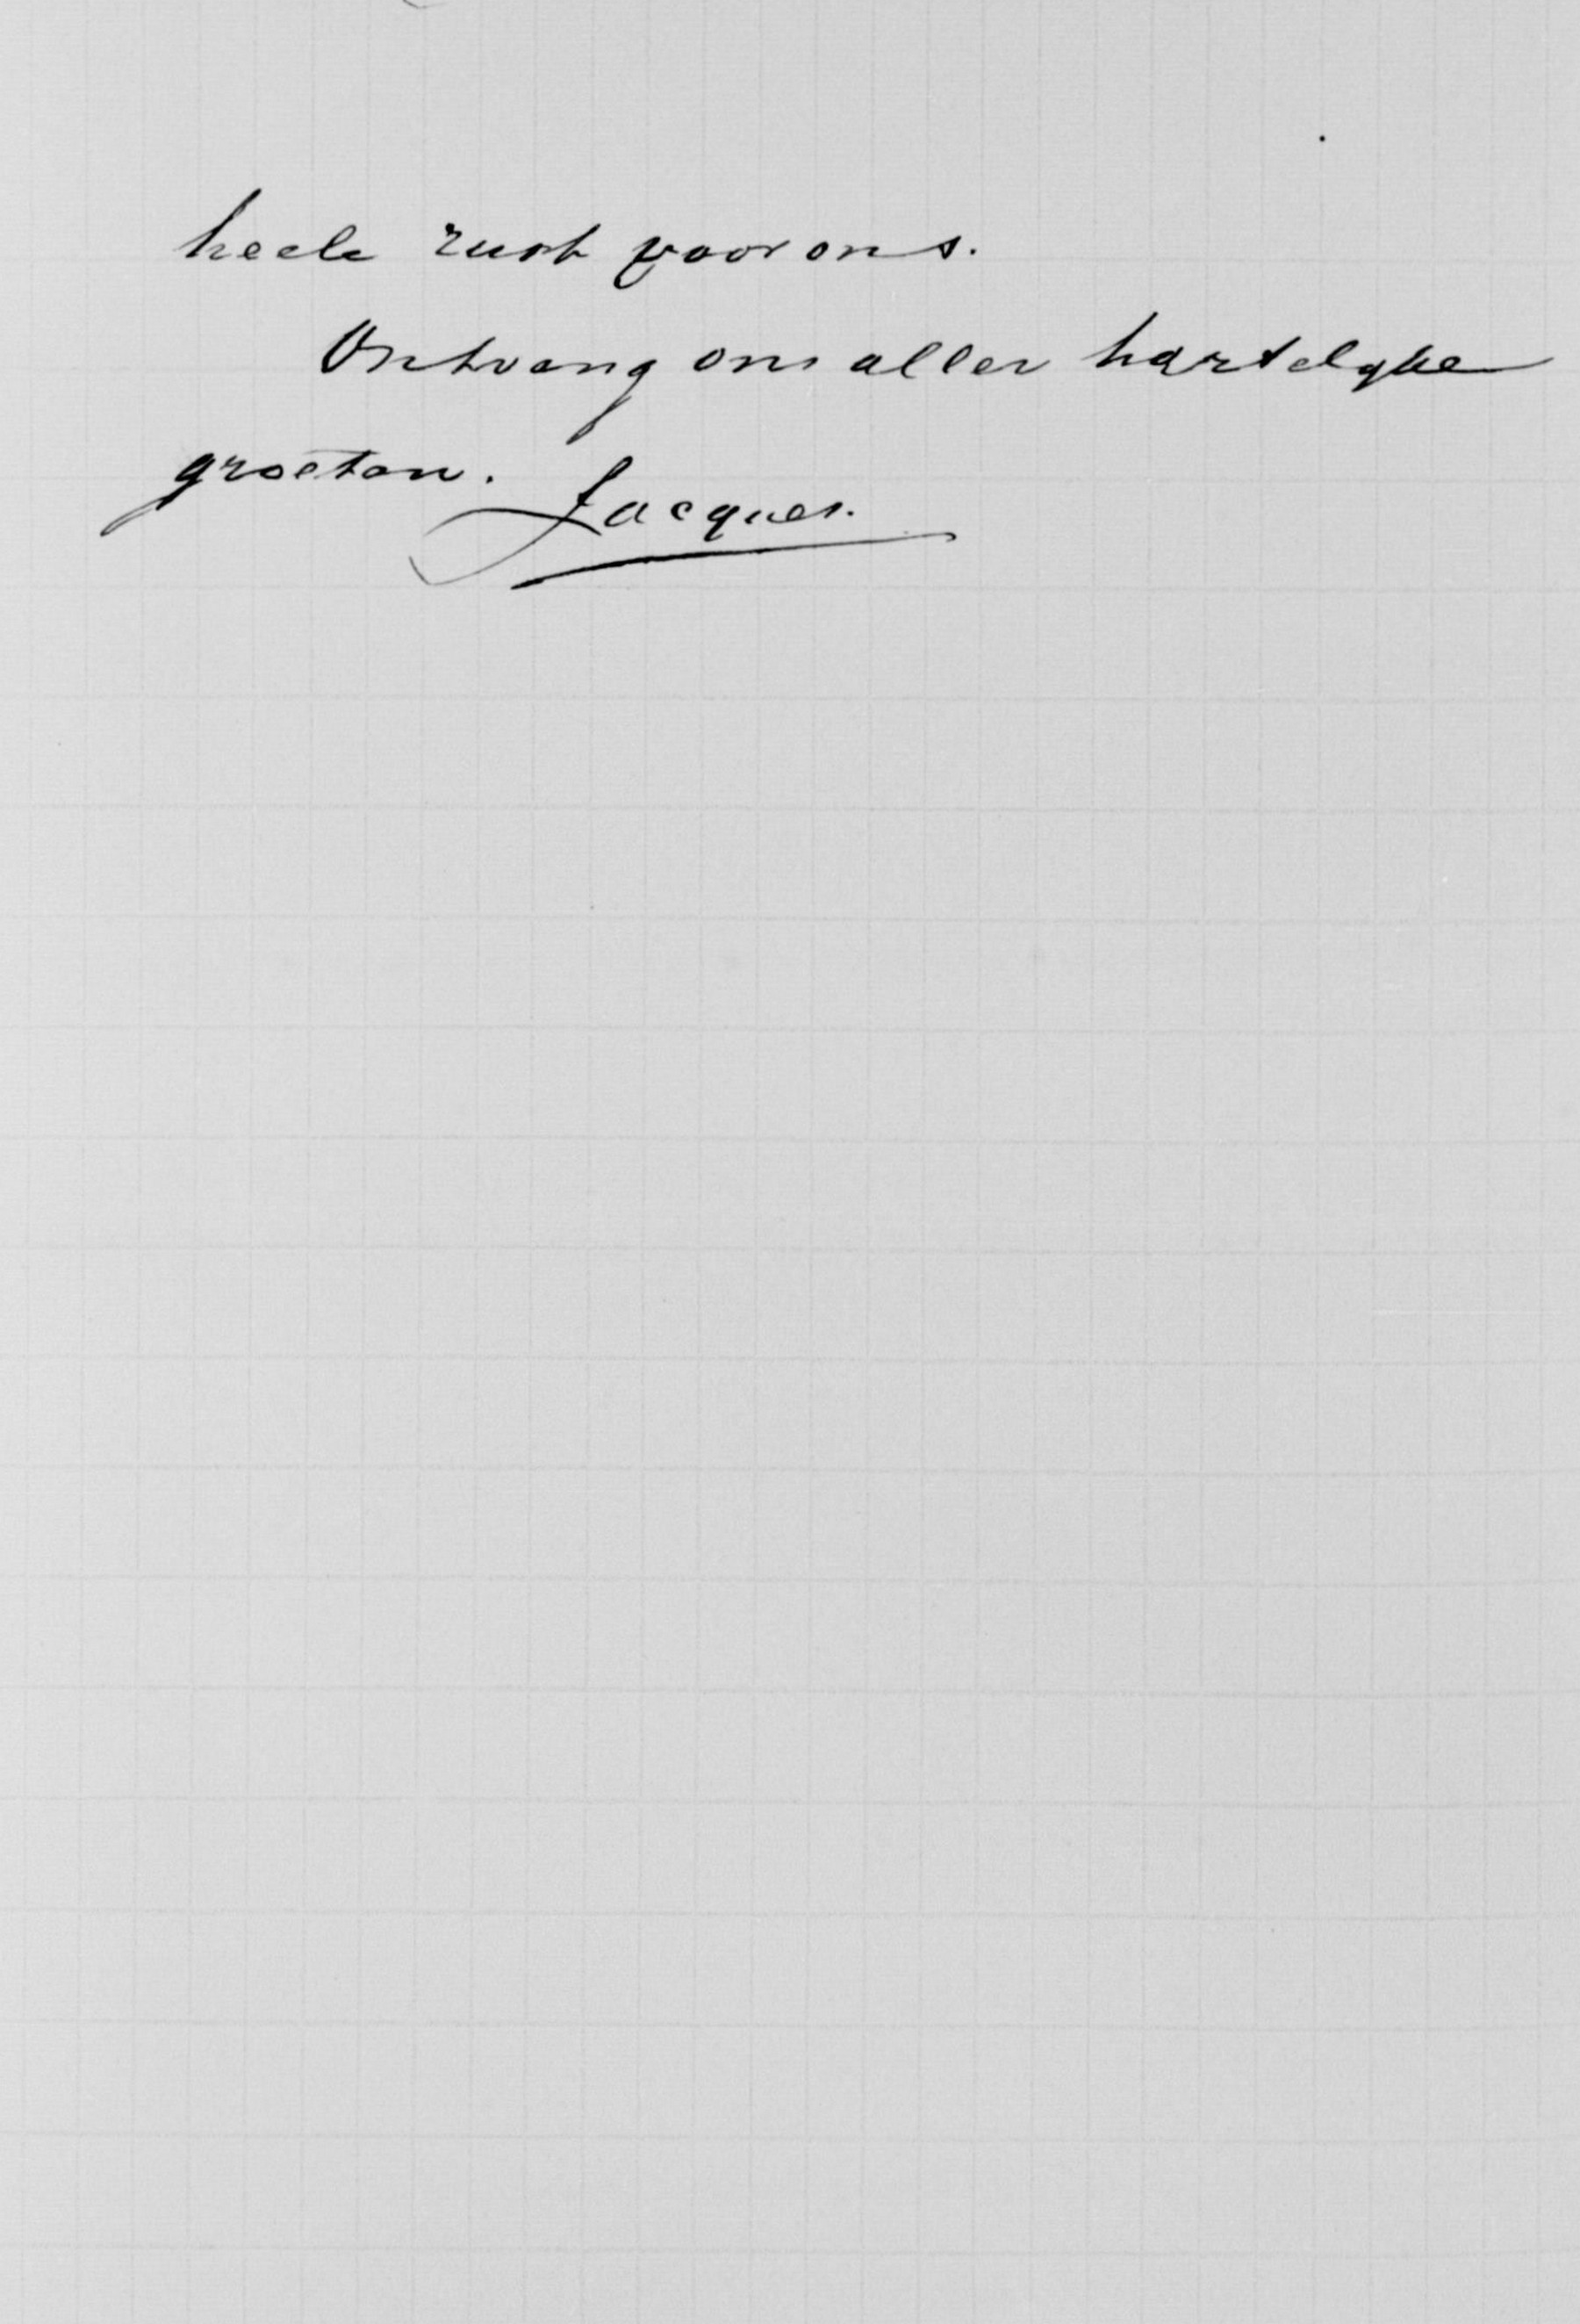 heele rust voor ons.
Ontvang ons aller hartelyke
groeten.
Jacques.